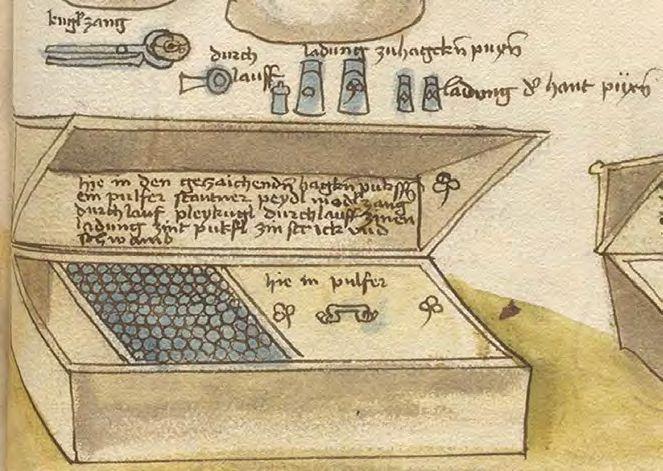 kugl zang
durch
lauff
ladung zu hagckn puxn
ladung d hant püxn
hie in den gezaichendn hagkn puksn
ein pulfer stautner peydl modl zang
durchlauf pleykugl durchlauff zinen
ladung zint pukfl zin strick vnd
schwamb
hie in pulfer